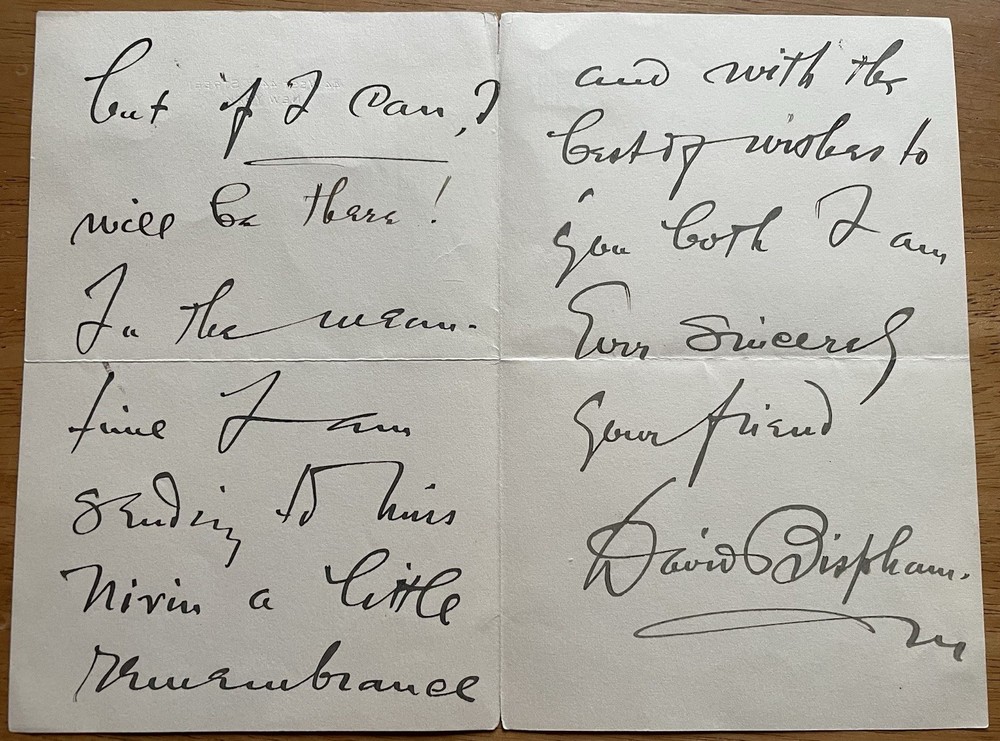 but if I can, I
will be there!
In the mean-
time I am
sending to Miss
Nivin a little
remembrance
and with the
best of wishes to
you both I am
Ever Sincerely
your friend
David Bispham.